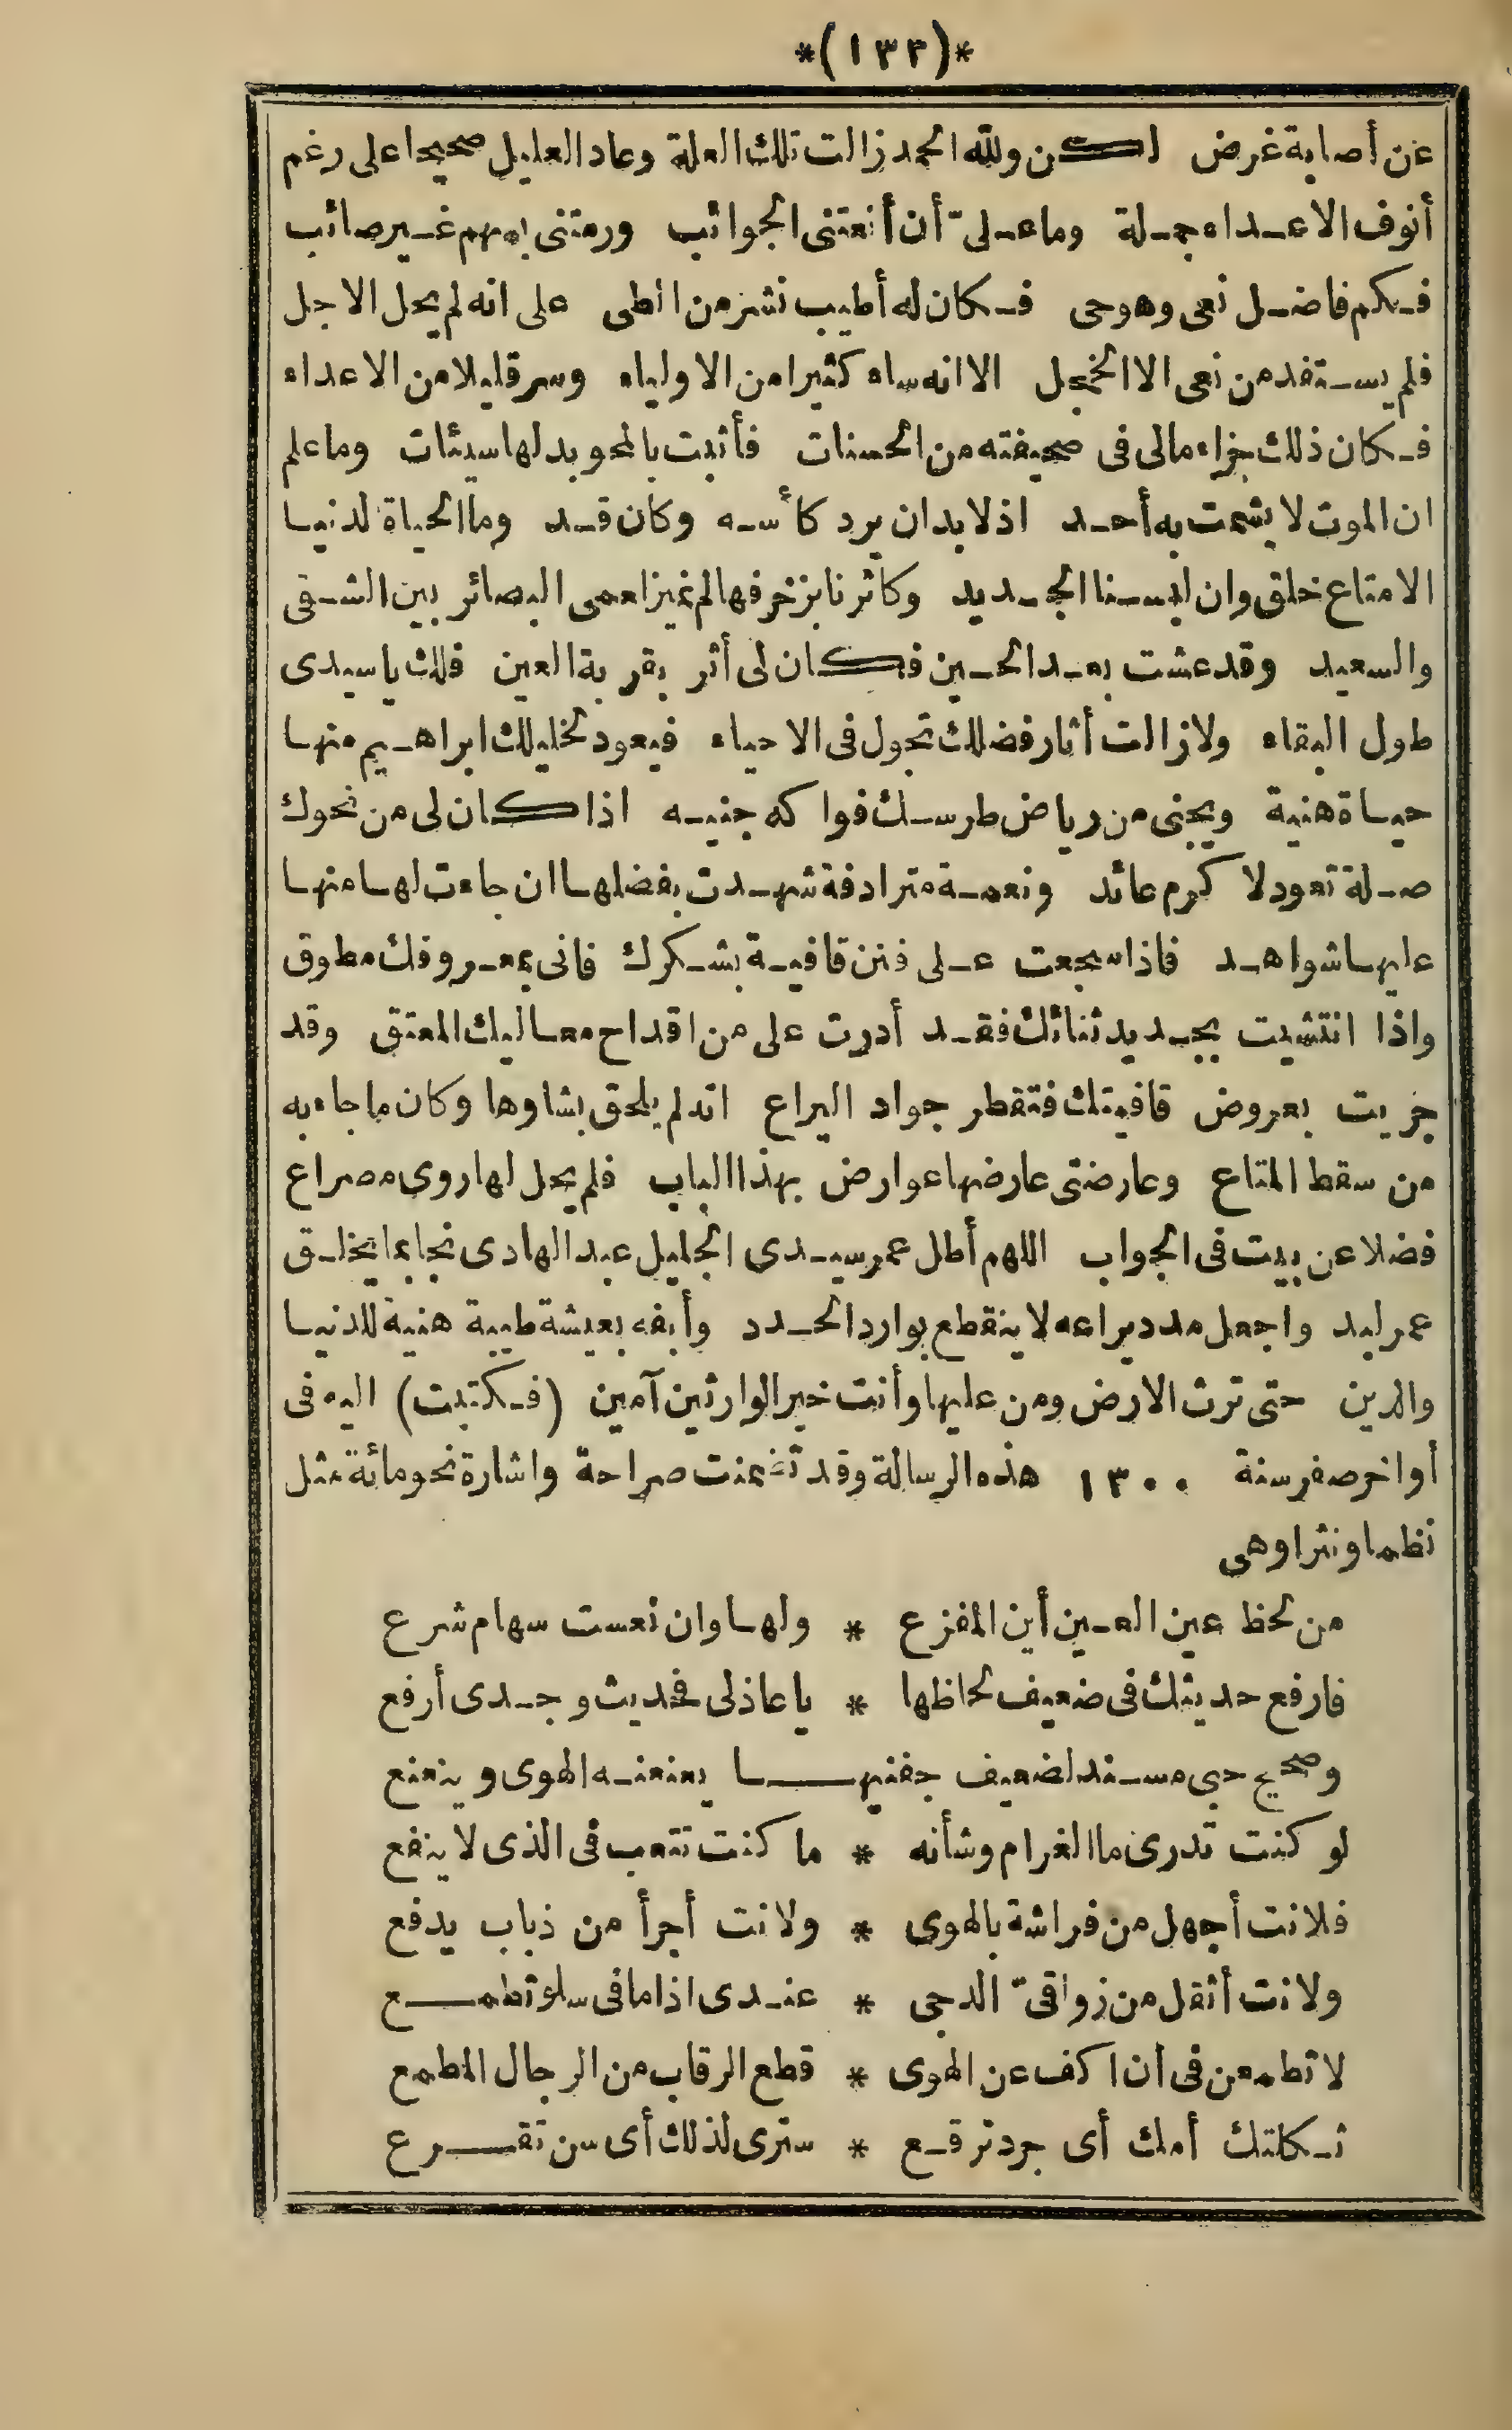 *(١٣٣)*
عن أصابة غرض لكن ولله الحمد زالت تلك العلة وعاد العليل صحيحا على رغم
أنوف الاعداء جملة وما علىّ أن أنعتنى الجوائب ورمتنى بسهم غير صائب
فكم فاضل نعى وهو حى فكان له أطيب نشر من الطى على انه لم يحل الاجل
فلم يستفد من نعى الا الخجل الا انه ساء كثيرا من الاولياء وسر قليلا من الاعداء
فكان ذلك جزاء مالى فى صحيفته من الحسنات فأثبت بالمحو بدلها سيئات وما علم
ان الموت لا يشمت به أحد اذ لا بد ان يرد كأسه وكان قد وما الحياة لدنيا
الا متاع خلق وان لبسنا الجديد وكاثرنا بزخرفها لم نميز لعمى البصائر بين الشقى
والسعيد وقد عشت بعد الحين فكان لى أثر بقربة العين فلك ياسيدى
طول البقاء ولا زالت أثار فضلك تجول فى الاحياء فيعود لخليلك ابراهيم منها
حياة هنية ويجنى من رياض طرسك فواكه جنيه اذا كان لى من نحوك
صلة تعود لا كرم عائد ونعمة مترادفة شهدت بفضلها ان جاءت لها منها
عليها شواهد فاذا سجعت على فنن قافية بشكرك فانى بمعروفك مطوق
واذا انتشيت بجديد ثنائك فقد أدرت على من اقداح معاليك المعتق وقد
جريت بعروض قافيتك فتقطر جواد اليراع اذ لم يلحق بشاوها وكان ما جاء به
من سقط المتاع وعارضتى عارضها عوارض بهذا الباب فلم يحل لها روى مصراع
فضلا عن بيت فى الجواب اللهم أطل عمر سيدى الجليل عبد الهادى نجا بما يخلق
عمر لبد واجعل مدد يراعه لا ينقطع بوارد الحدد وأبقه بعيشة طيبة هنية للدنيا
والدين حتى ترث الارض ومن عليها وأنت خير الوارثين آمين (فكتبت) اليه فى
أواخر صفر سنة ١٣٠٠ هذه الرسالة وقد تضمنت صراحة واشارة نحو مائة مثل
نظما ونثرا وهى
من لحظ عين العين أين المفزع * ولها وان نعست سهام شرع
فارفع حديثك فى ضعيف لحاظها * يا عاذلى فحديث وجدى أرفع
وصحيح حبى مسند لضعيف جفنيها يعنعنه الهوى وينعنع
لو كنت تدرى ما الغرام وشأنه * ما كنت تتعب فى الذى لا ينفع
فلانت أجهل من فراشة بالهوى * ولانت أجرأ من ذباب يدفع
ولانت أثقل من زواقىّ الدجى * عندى اذا ما فى سلو تطمع
لا تطمعن فى ان اكف عن الهوى * قطع الرقاب من الرجال المطمع
ثكلتك أمك أى جرد ترقع * سترى لذلك أى سن تقرع